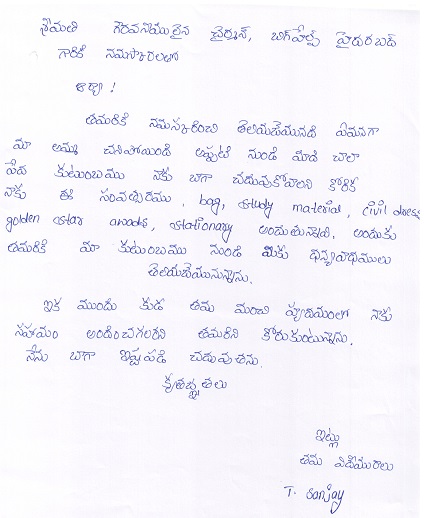 శ్రీమతి గౌరవనీయులైన చైర్మన్, బిగ్‌హెల్ప్ హైదరబద్
గారికి నమస్కారాలతో
ఆర్యా !
తమరికి నమస్కరించి తెలియజేయునది ఏమనగా
మా అమ్మ చనిపోయింది అప్పటి నుండి మాది చాలా
పేద కుటుంబము నాకు బాగా చదువుకోవాలని కోరిక
నాకు ఈ సంవత్సరము . bag, study material, civil dress
golden star awads, stationary అందుతున్నాయి. అందుకు
తమరికి మా కుటుంబము నుండి మీకు ధన్యవాధములు
తెలియజేయుచున్నాను.
ఇక ముందు కుడ తమ మంచి హృదయంలో నాకు
సహాయం అందించగలరని తమరిని కోరుకుంటున్నాను.
నేను బాగా ఇష్టపడి చదువుతను.
కృతజ్ఞతలు
ఇట్లు
తమ విదేయురాలు
T. Sanjay